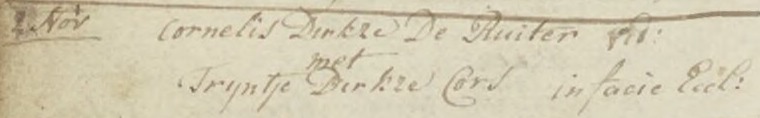 2 Nov Cornelis Dirkze De Ruiter Vid:
met
Tryntje Dirkze Cors in facie Eccl: